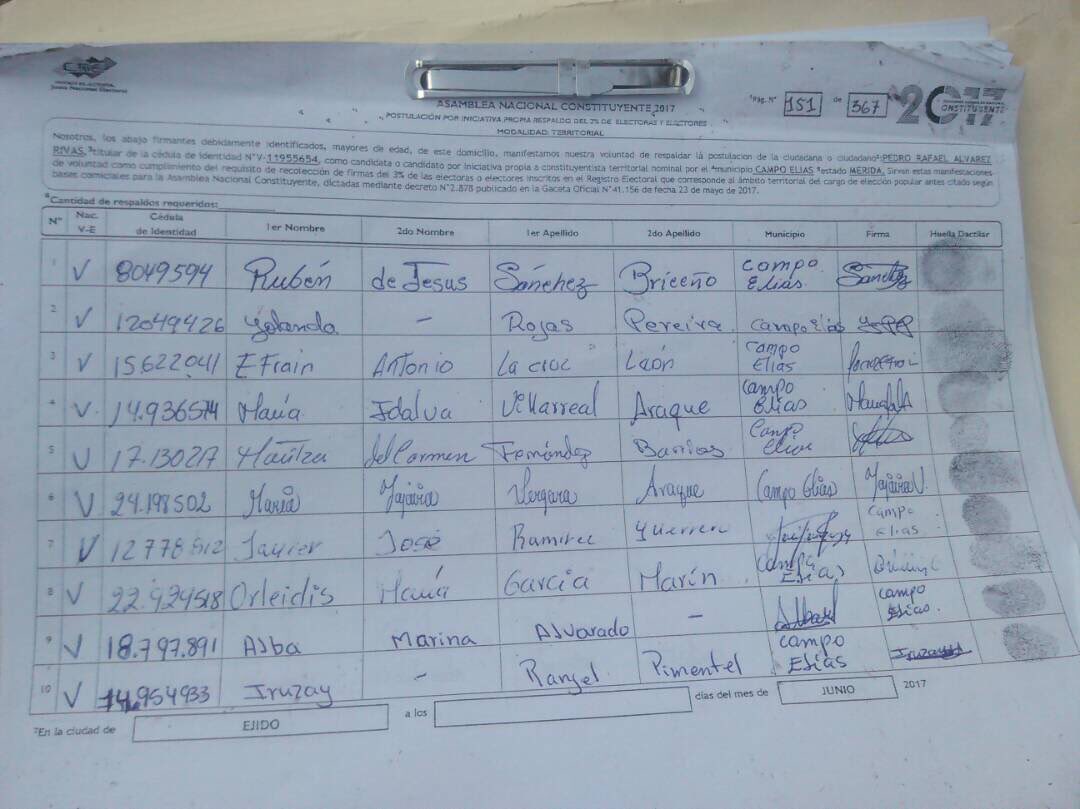 CNE
Junta Nacional Electoral
ASAMBLEA NACIONAL CONSTITUYENTE 2017
POSTULACIÓN POR INICIATIVA PROPIA RESPALDO DEL 3% DE ELECTORAS Y ELECTORES
MODALIDAD TERRITORIAL
¹Pág. N° 151 de 367
2017
CONSTITUYENTE
Nosotros, los abajo firmantes debidamente identificados, mayores de edad, de este domicilio, manifestamos nuestra voluntad de respaldar la postulación de la ciudadana o ciudadano²:PEDRO RAFAEL ALVAREZ
RIVAS, ³titular de la cédula de identidad N°V-11955654, como candidata o candidato por iniciativa propia a constituyentista territorial nominal por el ⁴municipio CAMPO ELIAS ⁵estado MERIDA, Sirvan estas manifestaciones
de voluntad como cumplimiento del requisito de recolección de firmas del 3% de las electoras o electores inscritos en el Registro Electoral que corresponde al ámbito territorial del cargo de elección popular antes citado según
bases comiciales para la Asamblea Nacional Constituyente, dictadas mediante decreto N°2.878 publicado en la Gaceta Oficial N°41.156 de fecha 23 de mayo de 2017.
⁶Cantidad de respaldos requeridos:
N° Nac. V-E Cédula de Identidad 1er Nombre 2do Nombre 1er Apellido 2do Apellido Municipio Firma Huella Dactilar
1 V 8049594 Rubén de Jesus Sánchez Briceño Campo Elias Sánchez
2 V 12049426 Yolanda - Rojas Pereira Campo Elias
3 V 15.622.041 Efrain Antonio La cruz León Campo Elias
4 V 14.936574 María Idalva Villarreal Araque Campo Elias
5 V 17.130217 Maritza del Carmen Fernández Barrios Campo Elias
6 V 24.198502 María Yajaira Vergara Araque Campo Elias Yajaira V.
7 V 12778512 Javier José Ramirez Campo Elias
8 V 22.924518 Orleidis María Garcia Marín Campo Elias
9 V 18.797.891 Alba Marina Alvarado - Campo Elias
10 V 14.954933 Iruzay - Rangel Pimentel Campo Elias Iruzay
⁷En la ciudad de EJIDO a los días del mes de JUNIO 2017